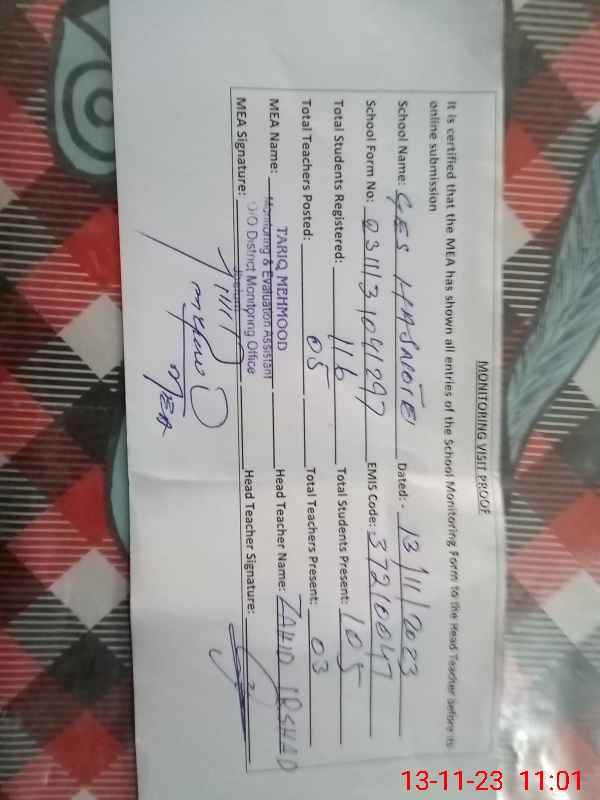 MONITORING VISIT PROOF
It is certified that the MEA has shown all entries of the School Monitoring Form to the Head Teacher before its
online submission
School Name: GES HASNOTE Dated: - 13/11/2023
School Form No: 0311131041297 EMIS Code: 37210047
Total Students Registered: 116 Total Students Present: 105
Total Teachers Posted: 05 Total Teachers Present: 03
MEA Name: TARIQ MEHMOOD Head Teacher Name: ZAHID IRSHAD
Monitoring & Evaluation Assistant
O/O District Monitoring Office
MEA Signature: Head Teacher Signature:
MEA
13-11-23 11:01